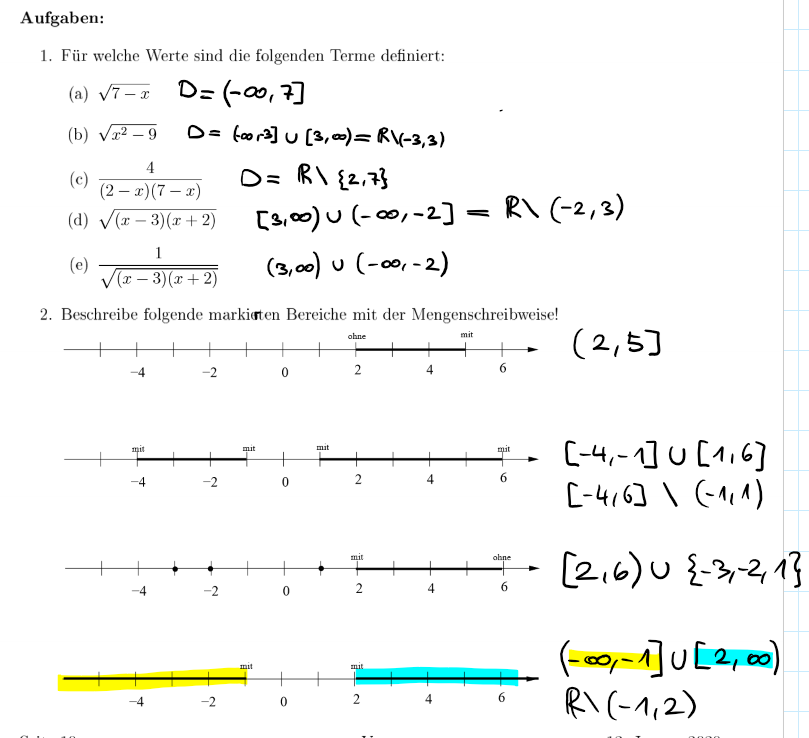 Aufgaben:
1. Für welche Werte sind die folgenden Terme definiert:
(a) √(7 − x) D = (-∞, 7]
(b) √(x² − 9) D = (-∞,-3] ∪ [3, ∞) = ℝ\(-3,3)
(c) 4/((2 − x)(7 − x)) D = ℝ \ {2,7}
(d) √((x − 3)(x + 2)) [3,∞) ∪ (-∞, -2] = ℝ\ (-2,3)
(e) 1/√((x − 3)(x + 2)) (3,∞) ∪ (-∞, -2)
2. Beschreibe folgende markierten Bereiche mit der Mengenschreibweise!
ohne mit
−4 −2 0 2 4 6
(2,5]
mit mit mit mit
−4 −2 0 2 4 6
[-4,-1] ∪ [1,6]
[-4,6] \ (-1,1)
mit ohne
−4 −2 0 2 4 6
[2,6) ∪ {-3,-2,1}
mit mit
−4 −2 0 2 4 6
(-∞,-1] ∪ [2,∞)
ℝ\(-1,2)